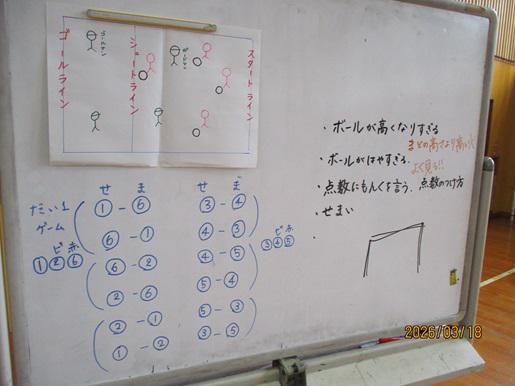 ゴールライン
シュートライン
スタートライン
・ボールが高くなりすぎる
・ボールがはやすぎる。
よく見る!!
・点数にもんくを言う、点数のつけ方
・せまい
・
せ ま
せ ま
だい1
ゲーム
①-⑥
③-④
⑥-①
④-③
ビ赤
①②⑥
ビ赤
③④⑤
⑥-②
④-⑤
②-⑥
⑤-④
②-①
⑤-③
①-②
③-⑤
2026/03/18